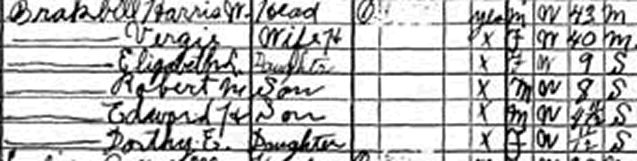 Brakbill Harris W. Head O yes M W 43 M
Vergie Wife H X F W 40 M
Elizabeth L. Daughter X F W 9 S
Robert M Son X M W 8 S
Edward H Son X M W S
Dorthy E. Daughter X F W S